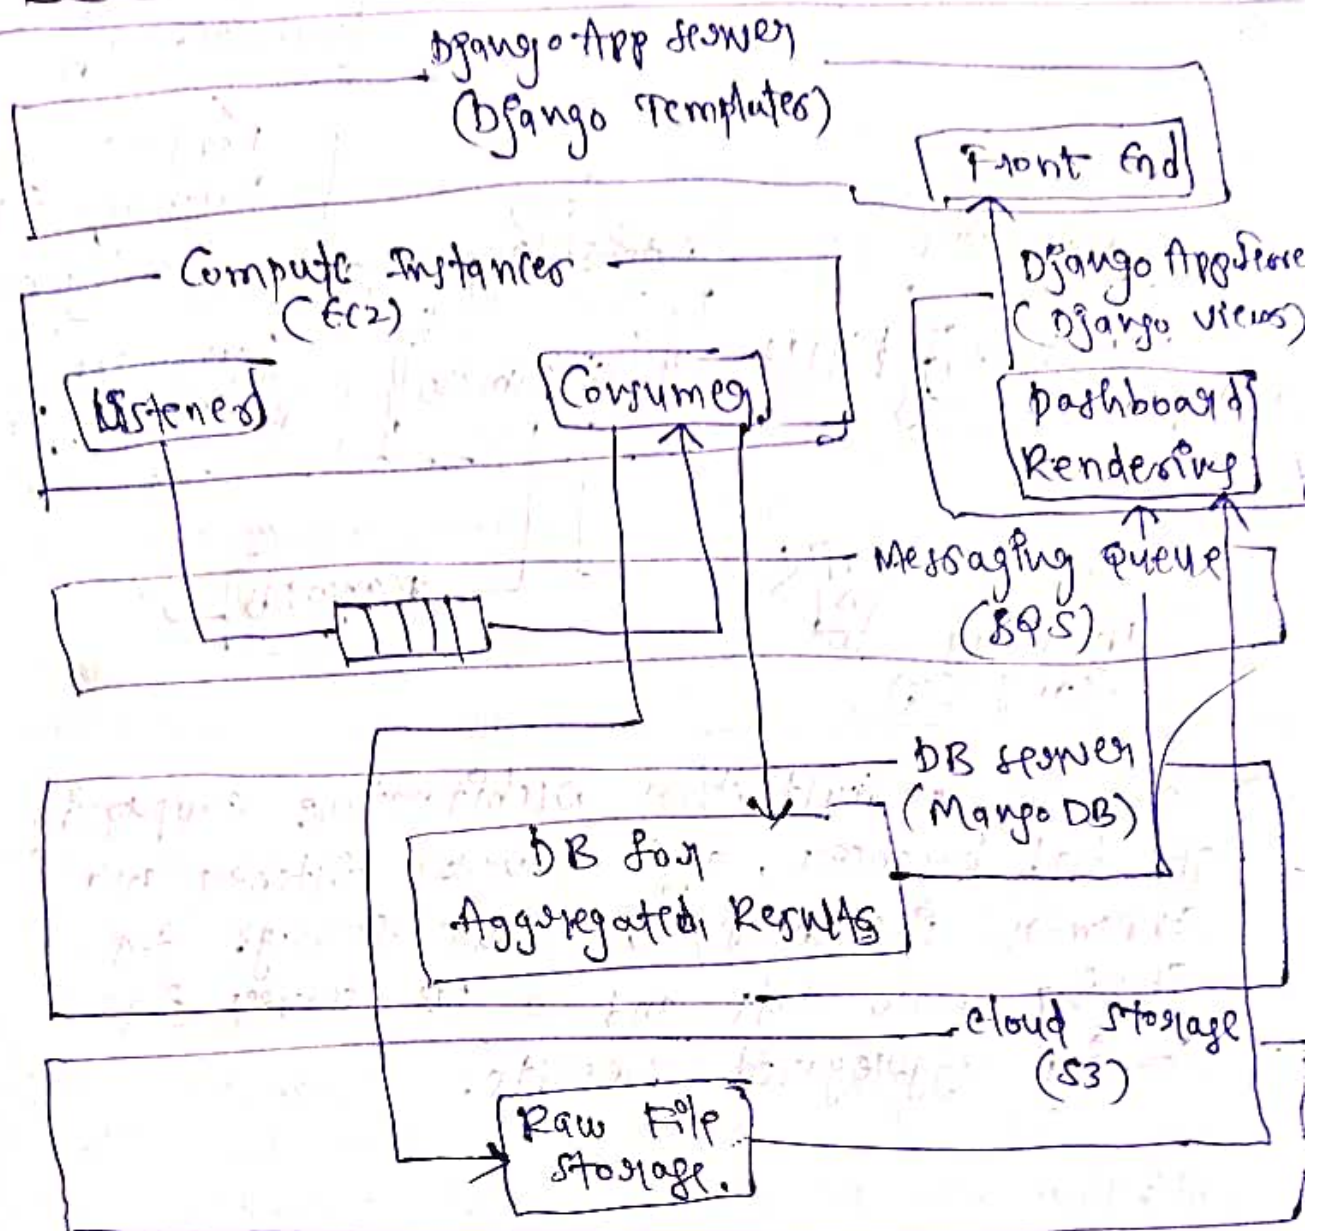 Django App Server
(Django Templates)
Front End
Compute Instances
(EC2)
Django App
(Django Views)
Listener
Consumer
Dashboard
Rendering
Messaging Queue
(SQS)
DB server
(Mango DB)
DB for
Aggregated Results
Cloud Storage
(S3)
Raw File
Storage.